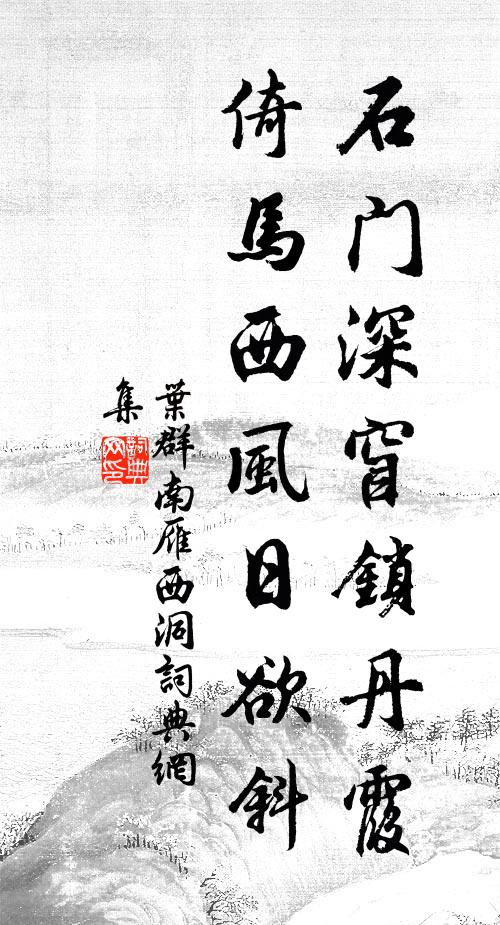 石门深窅鎖丹霞
倚馬西風日欲斜
葉群南雁西洞詞典網
集
詞典
网印